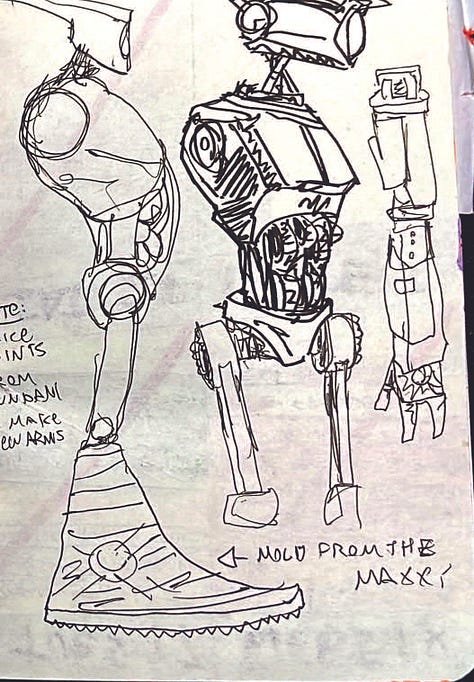 TE:
ICE
INTS
ROM
UNDAM
MAKE
EW ARMS
← MOLD FROM THE
MAXX!